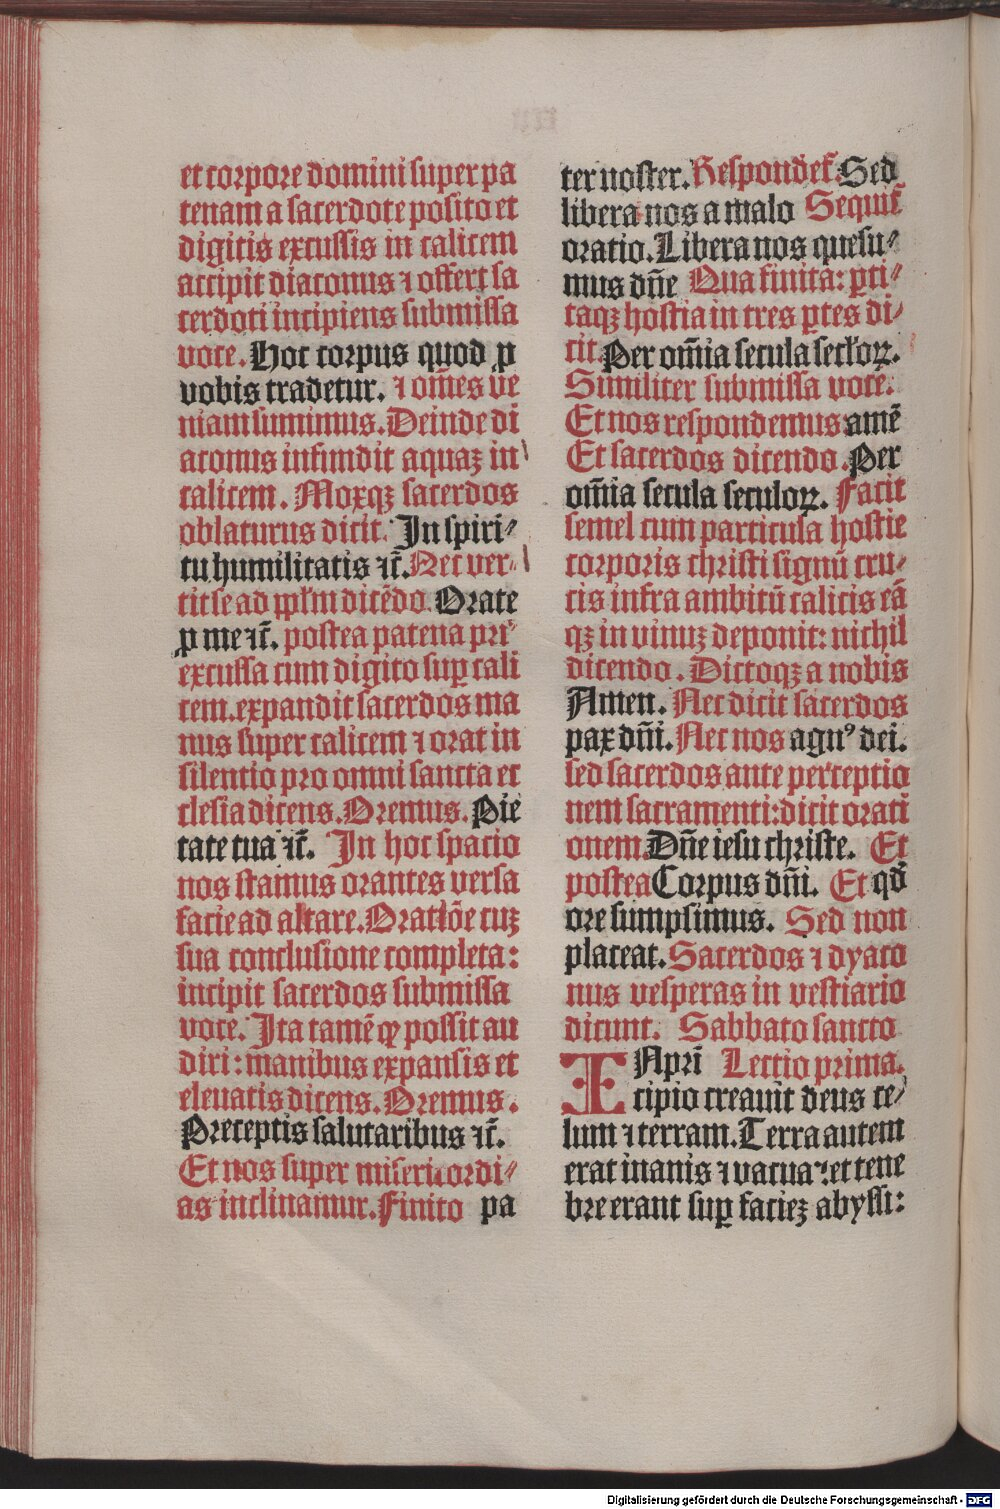 et corpore domini super pa
tenam a sacerdote posito et
digitis excussis in calicem
accipit diaconus ⁊ offert sa
cerdoti incipiens submissa
voce. Hoc corpus quod ꝓ
vobis tradetur. ⁊ om̄es ve
niam sumimus. Deinde di
aconus infundit aquaꝫ in
calicem. Moxqꝫ sacerdos
oblaturus dicit. In spiri⸗
tu humilitatis ⁊c̄. Nec ver⸗
tit se ad ppl̄m dicēdo. Orate
ꝓ me ⁊c̄. postea patena pri⸗
excussa cum digito suꝑ cali
cem. expandit sacerdos ma
nus super calicem ⁊ orat in
silentio pro omni sancta ec
clesia dicens. Oremus. Pie
tate tua ⁊c̄. In hoc spacio
nos stamus orantes versa
facie ad altare. Oratiōe cuꝫ
sua conclusione completa:
incipit sacerdos submissa
voce. Ita tamē ꝙ possit au
diri: manibus expansis et
eleuatis dicens. Oremus.
Preceptis salutaribus ⁊c̄.
Et nos super misericordi⸗
as inclinamur. Finito pa
ter noster. Respondet̄. Sed
libera nos a malo Sequit̄
oratio. Libera nos quesu⸗
mus dn̄e Qua finita: ꝑti⸗
taqꝫ hostia in tres ꝑtes di⸗
cit. Per om̄ia secula secl̄oꝝ.
Similiter submissa voce.
Et nos respondemus amē
Et sacerdos dicendo. Per
om̄ia secula seculoꝝ. Facit
semel cum particula hostie
corporis christi signū cru⸗
cis infra ambitū calicis eā
qꝫ in vinuꝫ deponit: nichil
dicendo. Dictoqꝫ a nobis
Amen. Nec dicit sacerdos
pax dn̄i. Nec nos agnꝰ dei.
sed sacerdos ante perceptio
nem sacramenti: dicit orati
onem. Dn̄e iesu christe. Et
postea Corpus dn̄i. Et qd̄
ore sumpsimus. Sed non
placeat. Sacerdos ⁊ dyaco
nus vesperas in vestiario
dicunt. Sabbato sancto
IN pri Lectio prima.
cipio creauit deus ce⸗
lum ⁊ terram. Terra autem
erat inanis ⁊ vacua: et tene
bre erant suꝑ facieꝫ abyssi:
Digitalisierung gefördert durch die Deutsche Forschungsgemeinschaft - DFG